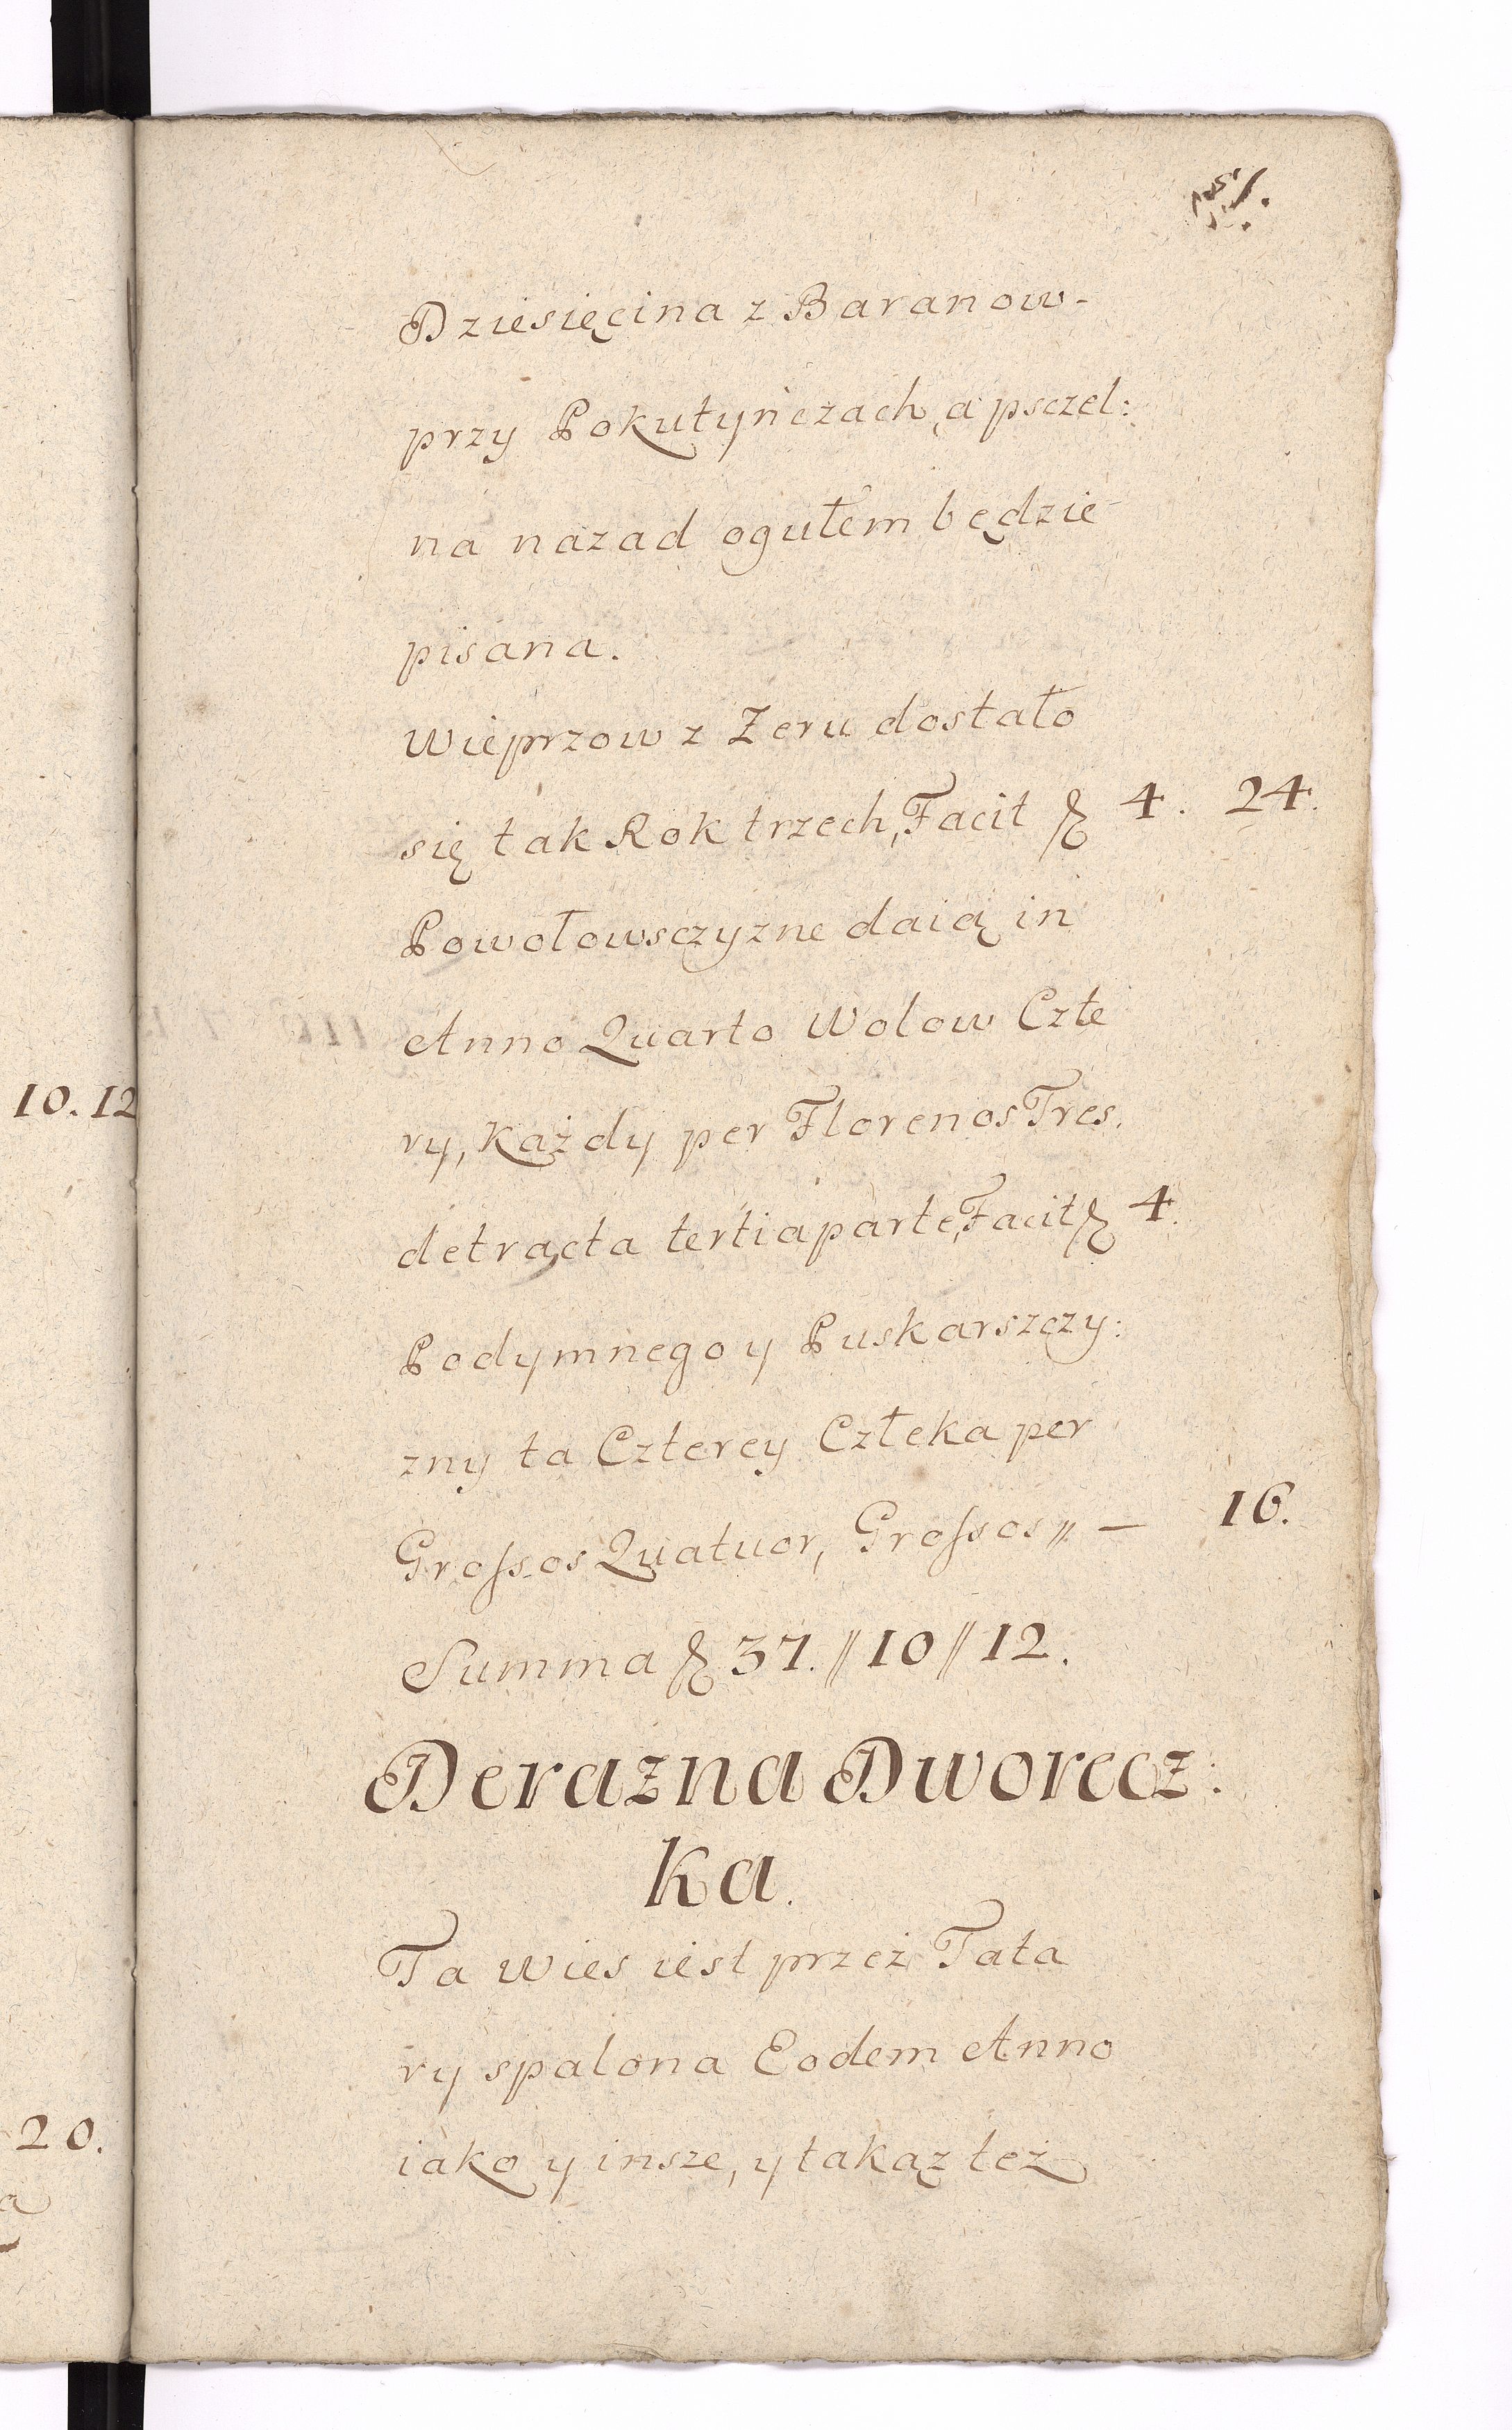 Dziesięcina z Baranow-
przy Pokutyńczach, a psczel:
na nazad ogułem będzie
pisana.
Wieprzow z Zeru dostało
się tak Rok trzech, Facit fl 4. 24.
Powołowsczyzne daią in
Anno Quarto Wolow Czte
10. 12
ry, każdy per Florenos Tres.
detracta tertia parte, Facit fl 4.
Podymnego y Puskarszczy:
zny ta Czterey Człeka per
Grossos Quatuor, Grossos // — 16.
Summa fl 37. // 10 // 12.
Derazna Dworecz:
ka.
Ta wies iest przeż Tata
ry spalona Eodem Anno
20.
iako y insze, y takąz też
a